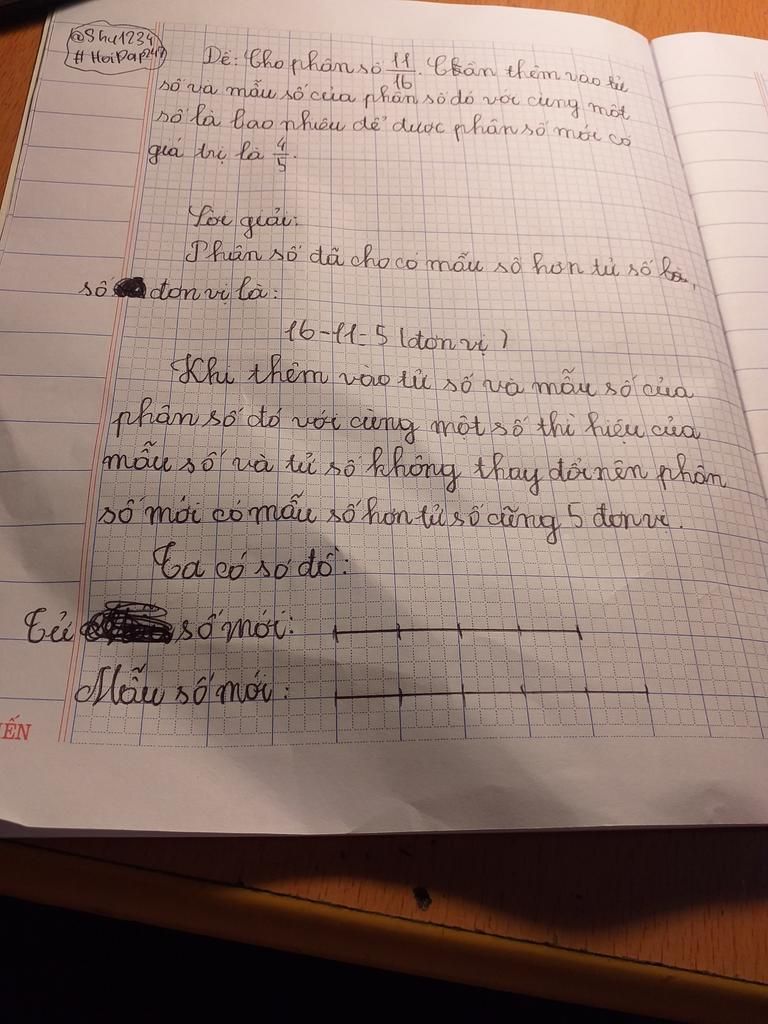 @Shu1234
#HoiDap247
Đề: Cho phân số 11/16. Cần thêm vào tử
số và mẫu số của phân số đó với cùng một
số là bao nhiêu để được phân số mới có
giá trị là 4/5.
Lời giải:
Phân số đã cho có mẫu số hơn tử số
số đơn vị là:
16-11=5 (đơn vị)
Khi thêm vào tử số và mẫu số của
phân số đó với cùng một số thì hiệu của
mẫu số và tử số không thay đổi nên phân
số mới có mẫu số hơn tử số cũng 5 đơn vị.
Ta có sơ đồ:
Tử số mới:
Mẫu số mới:
ẾN